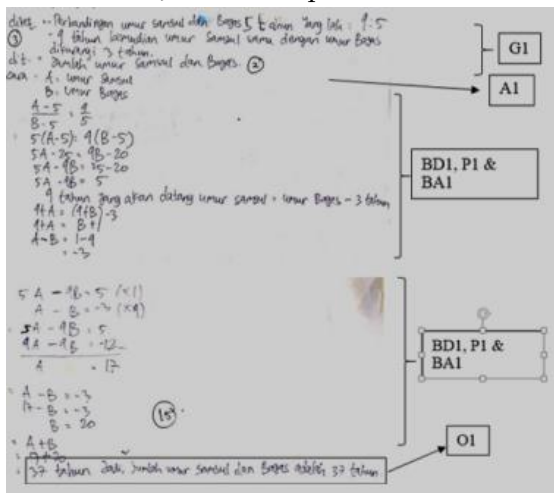 diket : - Perbandingan umur samsul dan Bagas 5 tahun yang lalu : 4:5
① - 4 tahun kemudian umur Samsul sama dengan umur Bagas
dikurangi 3 tahun.
dit : - Jumlah umur Samsul dan Bagas. ②
cara - A: umur Samsul
B: umur Bagas
A-5 / B-5 = 4 / 5
5(A-5) = 4(B-5)
5A - 25 = 4B - 20
5A - 4B = 25 - 20
5A - 4B = 5
4 tahun yang akan datang umur samsul = umur Bagas - 3 tahun
4+A = (4+B) - 3
4+A = B + 1
A - B = 1 - 4
= -3
5A - 4B = 5 (x1)
A - B = -3 (x4)
5A - 4B = 5
4A - 4B = -12
A = 17
= A - B = -3
17 - B = -3
B = 20
= A + B
= 17 + 20
= 37 tahun Jadi, Jumlah umur Samsul dan Bagas adalah 37 tahun
G1
A1
BD1, P1 &
BA1
BD1, P1 &
BA1
O1